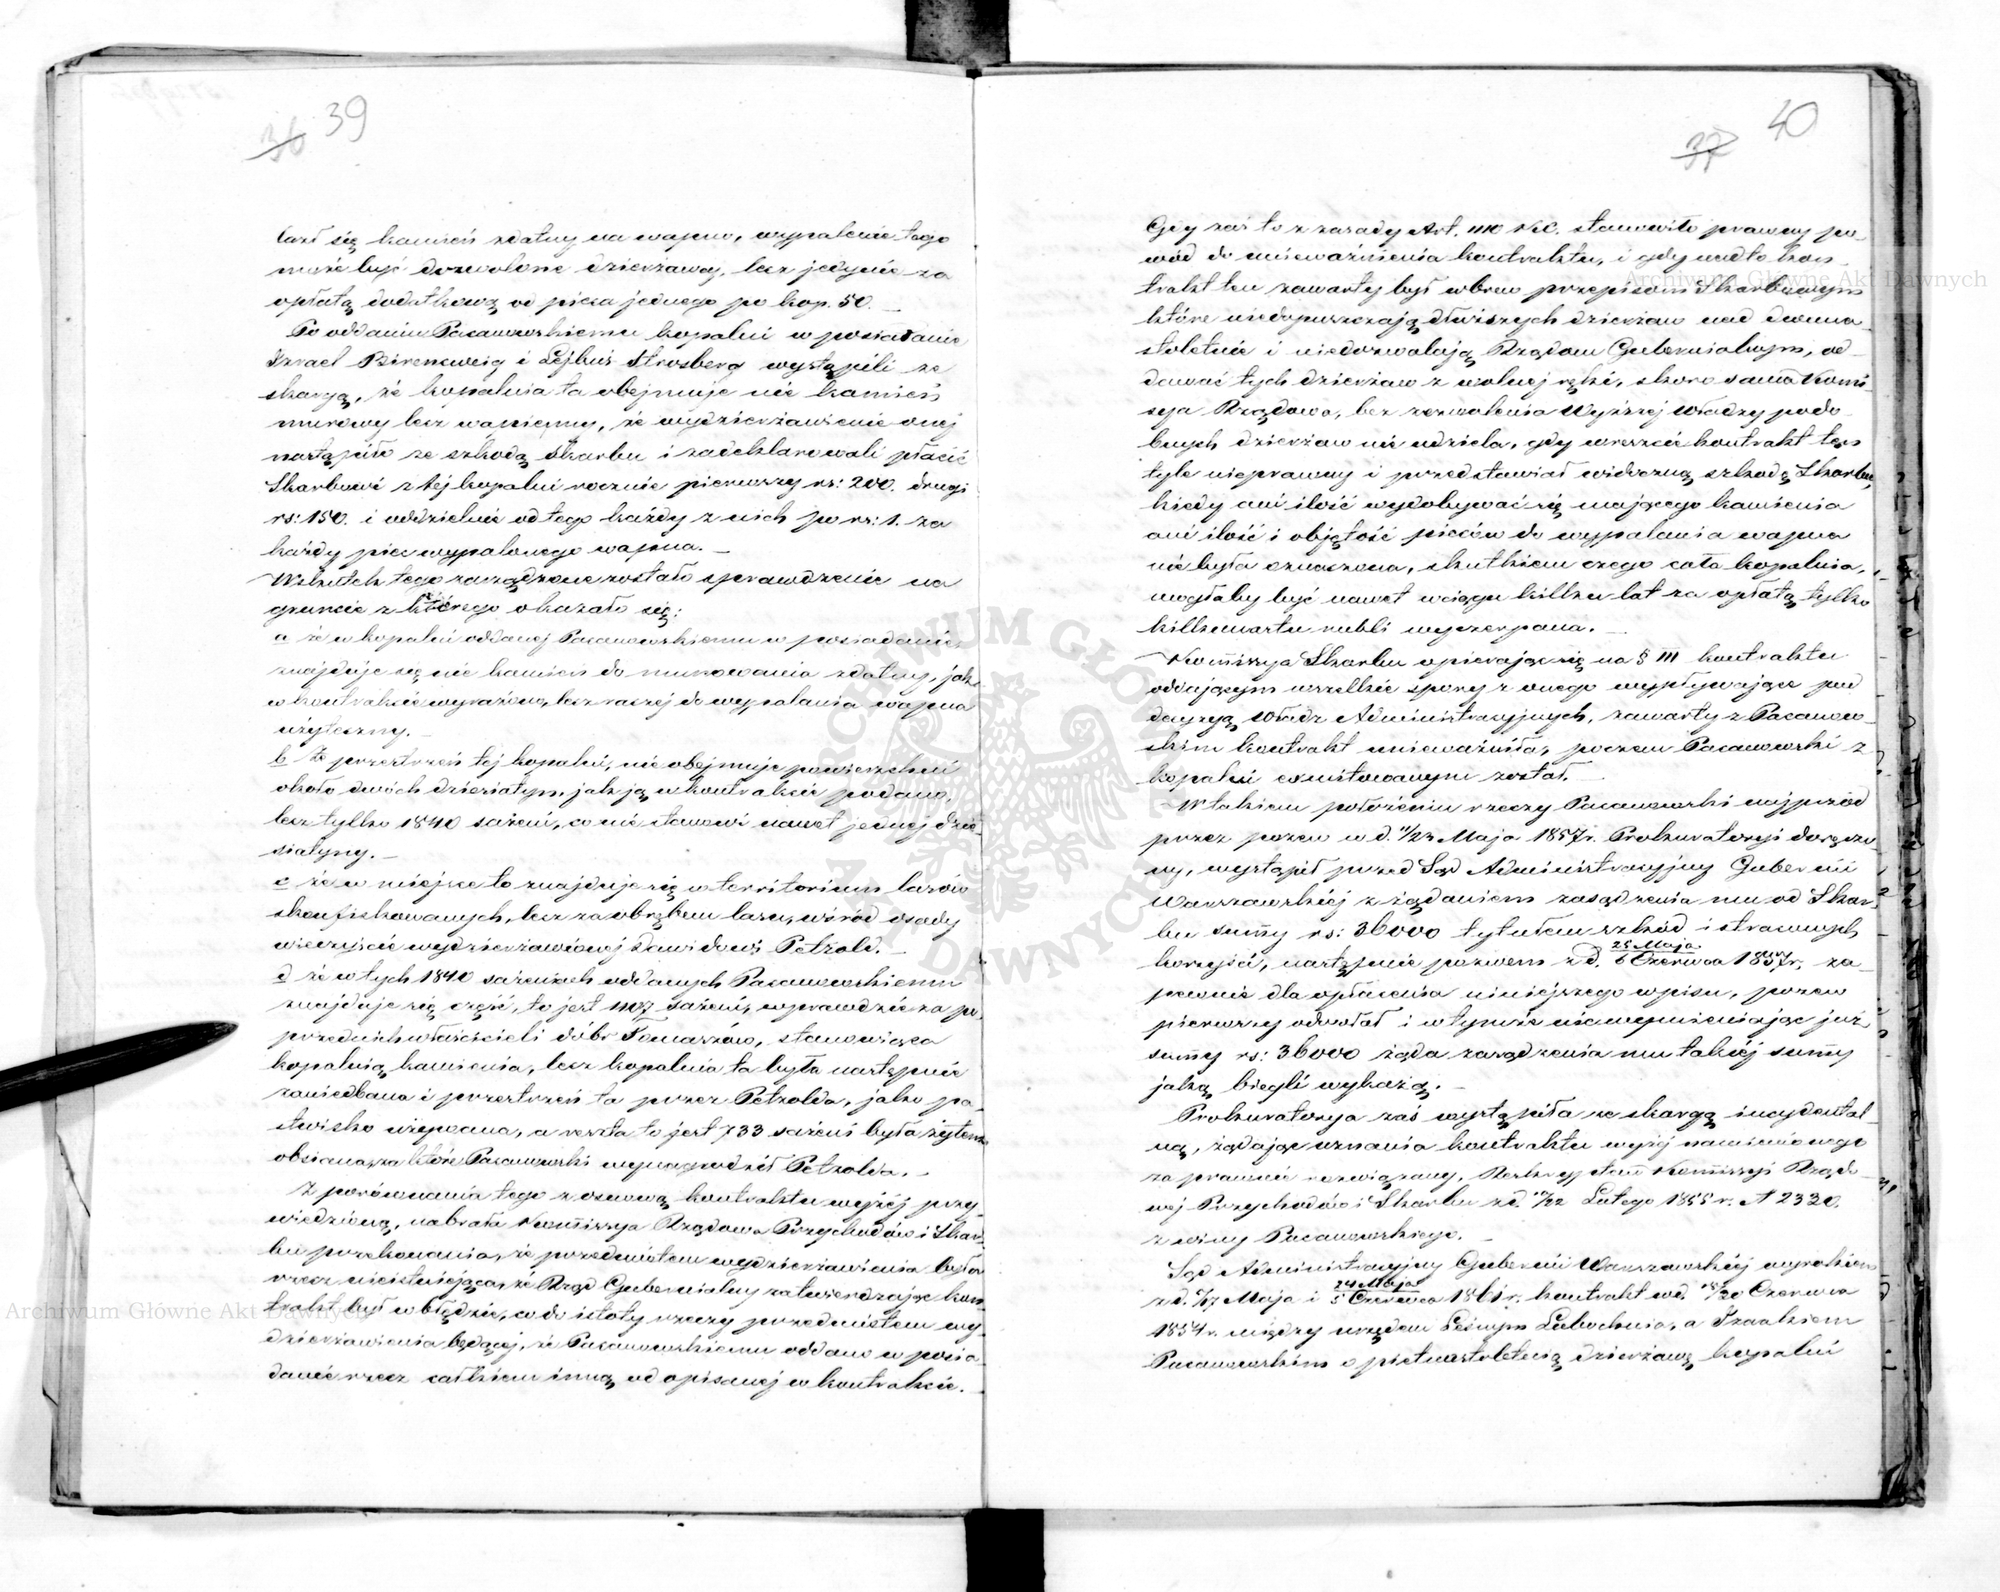 36 39
lazł się kamień zdatny na wapno, wypalenie tego
może być dozwolone dzierżawcy, lecz jedynie za
opłatą dodatkową od pieca jednego po kop. 50. _
Po oddaniu Pacanowskiemu kopalni w posiadanie
Izrael Birencweig i Lejbuś Strosberg wystąpili ze
skargą, że kopalnia ta obejmuje nie kamień
murowy lecz wapienny, że wydzierżawienie onej
nastąpiło ze szkodą Skarbu i zadeklarowali płacić
Skarbowi z tej kopalni rocznie pierwszy rs: 200. drugi
rs: 150. i oddzielnie od tego każdy z nich po rs: 1. za
każdy piec wypalonego wapna. _
Wskutek tego zarządzone zostało sprawdzenie na
gruncie z którego okazało się:
a że w kopalni oddanej Pacanowskiemu w posiadanie,
znajduje się nie kamień do murowania zdatny, jak
w kontrakcie wyrażono, lecz raczej do wypalania wapna
użyteczny. _
b że przestrzeń tej kopalni, nie obejmuje powierzchni
około dwóch dziesiatyn, jak ją w kontrakcie podano,
lecz tylko 1840 sażeni, co nie stanowi nawet jednej dzie-
siatyny. _
c że w miejsce to znajduje się w territorium lasów
skonfiskowanych, lecz za obrębem lasu, wśród osady
wieczyście wydzierżawionej Dawidowi Petzold. _
d że w tych 1840 sażeniach oddanych Pacanowskiemu
znajduje się część, to jest 1107 sażeni, wprawdzie za po-
przednich właścicieli dóbr Tomaszów, stanowiąca
kopalnią kamienia, lecz kopalnia ta była następnie
zaniedbana i przestrzeń ta przez Petzolda, jako pa-
stwisko używana, a reszta to jest 733 sażeni była żytem
obsiana, za które Pacanowski wynagrodził Petzolda. _
Z porównania tego z osnową kontraktu wyżej przy-
wiedzioną, nabrała Kommissya Rządowa Przychodów i Skar-
bu przekonania, że przedmiotem wydzierżawienia była
rzecz nieistniejąca, że Rząd Gubernialny zatwierdzając kon-
trakt był w błędzie, co do istoty rzeczy przedmiotem wy-
dzierżawienia będącej, że Pacanowskiemu oddano w posia-
danie rzecz całkiem inną od opisanej w kontrakcie.
37 40
Gdy zaś to z zasady Art. 1110 K.C. stanowiło prawny po-
wód do unieważnienia kontraktu, i gdy nadto kon-
trakt ten zawarty był wbrew przepisom Skarbowym
które niedopuszczają dłuższych dzierżaw nad dwuna-
stoletnie i niedozwalają Rządom Gubernialnym, od-
dawać tych dzierżaw z wolnej ręki, skoro sama Komi-
ssya Rządowa, bez zezwolenia Wyższej Władzy podo-
bnych dzierżaw nie udziela, gdy wreszcie kontrakt ten
tyle nieprawny i przedstawiał widoczną szkodę Skarbu,
kiedy ani ilość wydobywać się mającego kamienia
ani ilość i objętość pieców do wypalania wapna
nie była oznaczona, skutkiem czego cała kopalnia,
mogłaby być nawet w ciągu kilku lat za opłatą tylko
kilkunastu rubli wyczerpana. _
Kommissya Skarbu opierając się na § III kontraktu
oddającym wszelkie spory z onego wypływające pod
decyzyą Władz Administracyjnych, zawarty z Pacanow-
skim kontrakt unieważniła, poczem Pacanowski z
kopalni exmitowanym został. _
W takiem położeniu rzeczy Pacanowski najprzód
przez pozew w d. 11/23 Maja 1857 r. Prokuratoryi doręczo-
ny, wystąpił przed Sąd Administracyjny Gubernii
Warszawskiej z żądaniem zasądzenia mu od Skar-
bu summy rs: 36000 tytułem szkód i straconych
korzyści, następnie pozwem z d. 25 Maja/6 Czerwca 1857 r. za-
pewnie dla opłacenia niniejszego wpisu, pozew
pierwszy odwołał i w tymże nie wymieniając już
summy rs: 36000 żąda zasądzenia mu takiej summy
jaką biegli wykażą. _
Prokuratorya zaś wystąpiła ze skargą incydental-
ną, żądając uznania kontraktu wyżej namienionego
za prawnie rozwiązany, Reskryptem Kommissyi Rządo-
wej Przychodów i Skarbu z d. 10/22 Lutego 1855 r. N 2320.
z winy Pacanowskiego. _
Sąd Administracyjny Gubernii Warszawskiej wyrokiem
z d. 5/17 Maja i 24 Maja/5 Czerwca 1861 r. kontrakt w d. 18/30 Czerwca
1854 r. między urzędem Leśnym Lubochnia, a Izaakiem
Pacanowskim o piętnastoletnią dzierżawę kopalni
Archiwum Główne Akt Dawnych
Archiwum Główne Akt Dawnych
ARCHIWUM GŁÓWNE AKT DAWNYCH